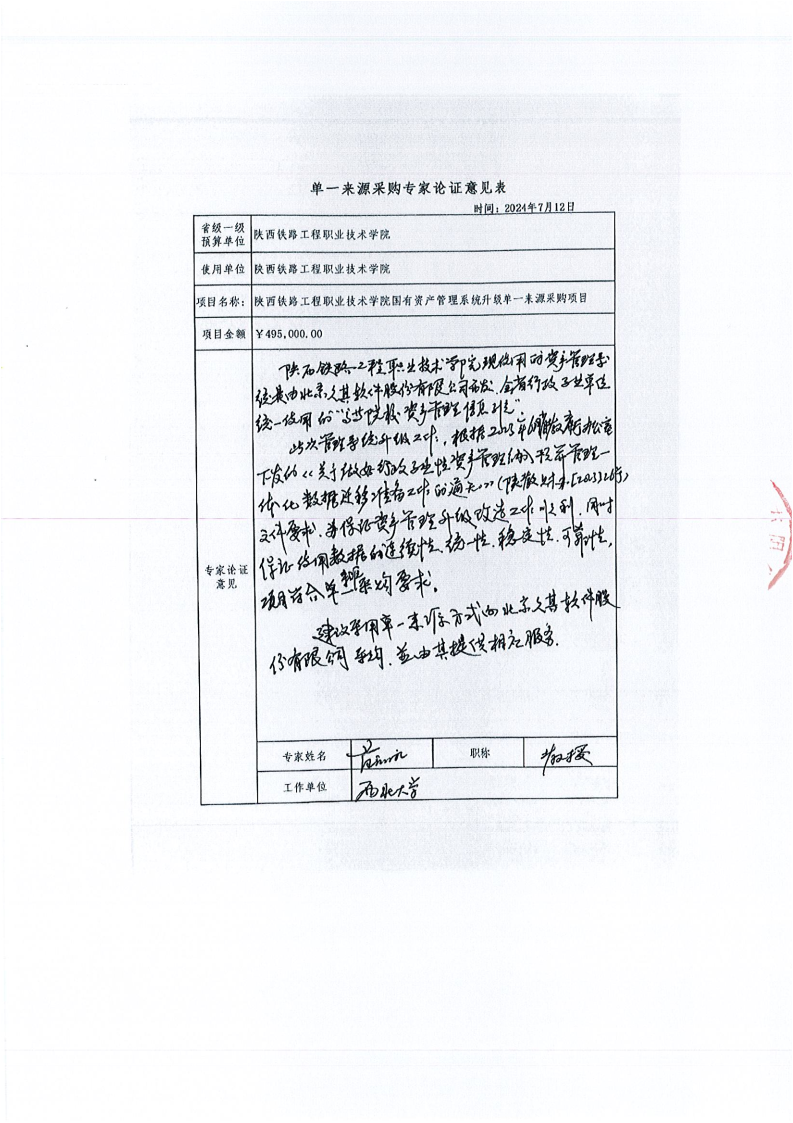 单一来源采购专家论证意见表
时间：2024年7月12日
省级一级预算单位 陕西铁路工程职业技术学院
使用单位 陕西铁路工程职业技术学院
项目名称： 陕西铁路工程职业技术学院国有资产管理系统升级单一来源采购项目
项目金额 ￥495,000.00
专家论证意见
陕西铁路工程职业技术学院现使用的资产管理系
统是由北京久其软件股份有限公司开发，全省行政事业单位
统一使用的“高校 资产管理信息系统”。
此次管理系统升级工作，根据2023年 省教育厅办公室
下发的《关于做好行政事业性资产管理纳入预算管理一
体化数据迁移准备工作的通知》（陕教 办[2023]26号）
文件要求，为保证资产管理升级改造工作顺利，同时
保证使用数据的连续性、统一性、稳定性、可靠性，
项目符合单一来源采购要求。
建议采用单一来源方式向北京久其软件股
份有限公司采购，并由其提供相应服务。
专家姓名
职称 教授
工作单位 西北大学